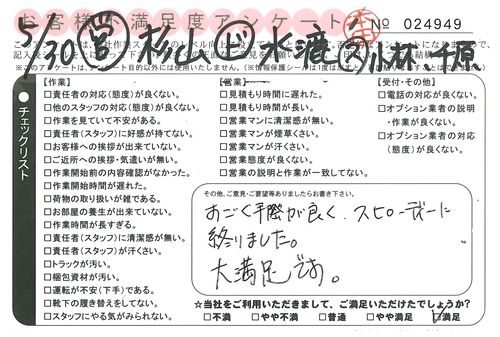 お客様不満足度アンケート
No 024949
5/30 営 杉山 ピ 水滝
チェックリスト
【作業】
□責任者の対応(態度)が良くない。
□他のスタッフの対応(態度)が良くない。
□作業を見ていて不安がある。
□責任者(スタッフ)に好感が持てない。
□お客様への挨拶が出来ていない。
□ご近所への挨拶・気遣いが無い。
□作業開始前の内容確認がなかった。
□作業開始時間が遅れた。
□荷物の取り扱いが雑である。
□お部屋の養生が出来ていない。
□作業時間が長すぎる。
□責任者(スタッフ)に清潔感が無い。
□責任者(スタッフ)が汗くさい。
□トラックが汚い。
□梱包資材が汚い。
□運転が不安(下手)である。
□靴下の履き替えをしてない。
□スタッフにやる気がみられない。
【営業】
□見積もり時間に遅れた。
□見積もり時間が長い。
□営業マンに清潔感が無い。
□営業マンが煙草くさい。
□営業マンが汗くさい。
□営業態度が良くない。
□営業の説明と作業が一致してない。
【受付・その他】
□電話の対応が良くない。
□オプション業者の説明
・作業が良くない。
□オプション業者の対応
(態度)が良くない。
その他、ご意見・ご要望等ありましたらお書き下さい。
すごく手際が良く、スピーディーに
終りました。
大満足です。
☆当社をご利用いただきまして、ご満足いただけたでしょうか?
□不満 □やや不満 □普通 □やや満足 ☑満足